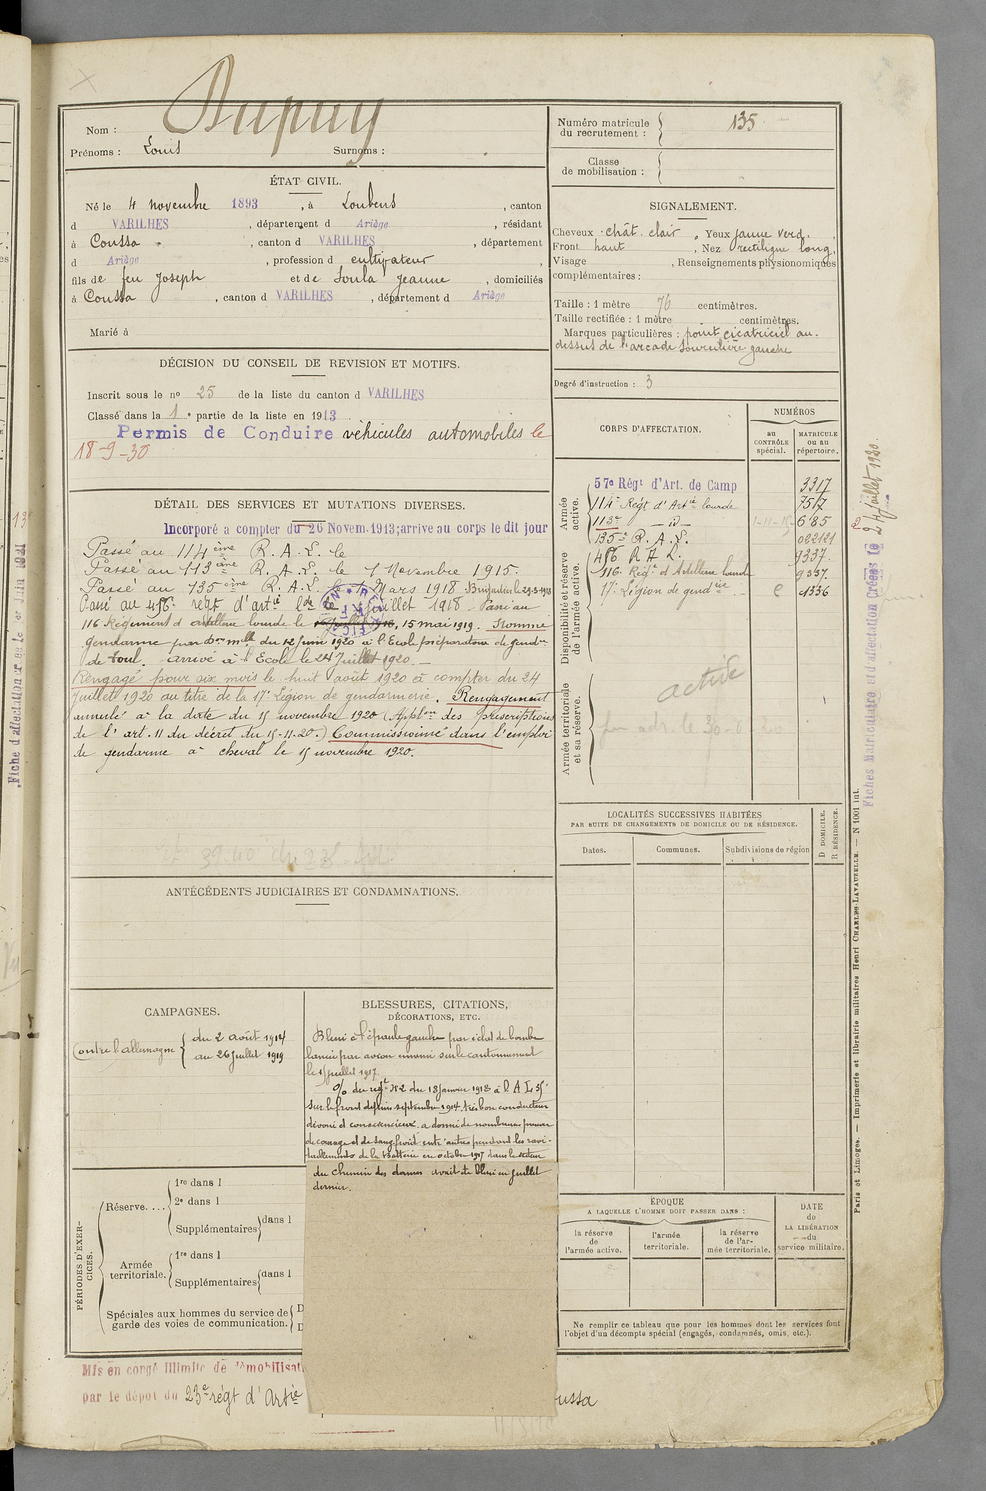 Dupuy
Nom :
Prénoms : Louis Surnoms :
ÉTAT CIVIL.
Né le 4 novembre 1893, à Loubens, canton
d VARILHES, département d Ariège, résidant
à Coussa, canton d VARILHES, département
d Ariège, profession d cultivateur,
fils de feu Joseph et de Soula Jeanne, domiciliés
à Coussa, canton d VARILHES, département d Ariège
Marié à
DÉCISION DU CONSEIL DE REVISION ET MOTIFS.
Inscrit sous le no 25 de la liste du canton d VARILHES
Classé dans la 1e partie de la liste en 1913.
Permis de Conduire véhicules automobiles le
18-9-30
DÉTAIL DES SERVICES ET MUTATIONS DIVERSES.
Incorporé a compter du 26 Novem. 1913; arrive au corps le dit jour
Passé au 114ème R.A.L. le
Passé au 113ème R.A.L. le 1 Novembre 1915.
Passé au 135ème R.A.L. le 1 Mars 1918. Brigadier le
Passé au 456e régt d'artie lde le Juillet 1918. Passé au
116 Régiment d'artillerie lourde le 15 mai 1919. Nommé
Gendarme par Don mlle du 12 Juin 1920 à l'Ecole préparatoire de gendie
de Toul. Arrivé à l'Ecole le 24 Juillet 1920.
Rengagé pour six mois le huit août 1920 à compter du 24
Juillet 1920 au titre de la 17e Légion de gendarmerie. Rengagement
annulé à la date du 15 novembre 1920 (Applon des prescriptions
de l'art. 11 du décret du 15-11-20.) Commissionné dans l'emploi
de gendarme à cheval le 15 novembre 1920.
ANTÉCÉDENTS JUDICIAIRES ET CONDAMNATIONS.
CAMPAGNES.
Contre l'allemagne { du 2 août 1914
au 26 juillet 1919
BLESSURES, CITATIONS,
DÉCORATIONS, ETC.
Blessé à l'épaule gauche par éclat de bombe
lancée par avion ennemi sur le cantonnement
le juillet 1917.
% du régt No 2 du 18 janvier 1918
Sur le front depuis septembre 1914. très bon conducteur
dévoué et consciencieux, a donné de nombreuses preuves
de courage et de sang froid entr'autres pendant les ravi-
taillements de la Batterie en octobre 1917 dans le secteur
du Chemin des dames avait été blessé en juillet
dernier.
PÉRIODES D'EXERCICES.
Réserve....
1re dans l
2e dans l
Supplémentaires dans l
Armée territoriale.
1re dans l
Supplémentaires dans l
Spéciales aux hommes du service de
garde des voies de communication.
Mis en congé illimité de démobilisati
par le dépôt du 23e régt d'Artie ussa
Numéro matricule
du recrutement : 135
Classe
de mobilisation :
SIGNALEMENT.
Cheveux chât. clair, Yeux jaune verd.,
Front haut, Nez rectiligne long,
Visage , Renseignements physionomiques
complémentaires :
Taille : 1 mètre 76 centimètres.
Taille rectifiée : 1 mètre centimètres.
Marques particulières : point cicatriciel au-
dessus de l'arcade sourcilière gauche
Degré d'instruction : 3
CORPS D'AFFECTATION.
NUMÉROS
au CONTRÔLE spécial.
MATRICULE ou au répertoire.
Armée active.
57e Régt d'Art. de Camp 3317
114e Régt d'Artie lourde 7517
113e — id — 685
135e R.A.L. 022121
Disponibilité et réserve de l'armée active.
456 R A L. 9337.
116 Régt d'Artillerie lourde 9337
17e Légion de gendie e 1336
Armée territoriale et sa réserve.
active
LOCALITÉS SUCCESSIVES HABITÉES
PAR SUITE DE CHANGEMENTS DE DOMICILE OU DE RÉSIDENCE.
Dates. Communes. Subdivisions de région
D DOMICILE.
R RÉSIDENCE.
ÉPOQUE
A LAQUELLE L'HOMME DOIT PASSER DANS :
la réserve de l'armée active.
l'armée territoriale.
la réserve de l'armée territoriale.
DATE de LA LIBÉRATION du service militaire.
Ne remplir ce tableau que pour les hommes dont les services font
l'objet d'un décompte spécial (engagés, condamnés, omis, etc.).
Paris et Limoges. — Imprimerie et librairie militaires Henri CHARLES-LAVAUZELLE. — N 1001 int.
Fiches Matriculaire et d'affectation Créées le 24 juillet 1920.
Fiche d'affectation